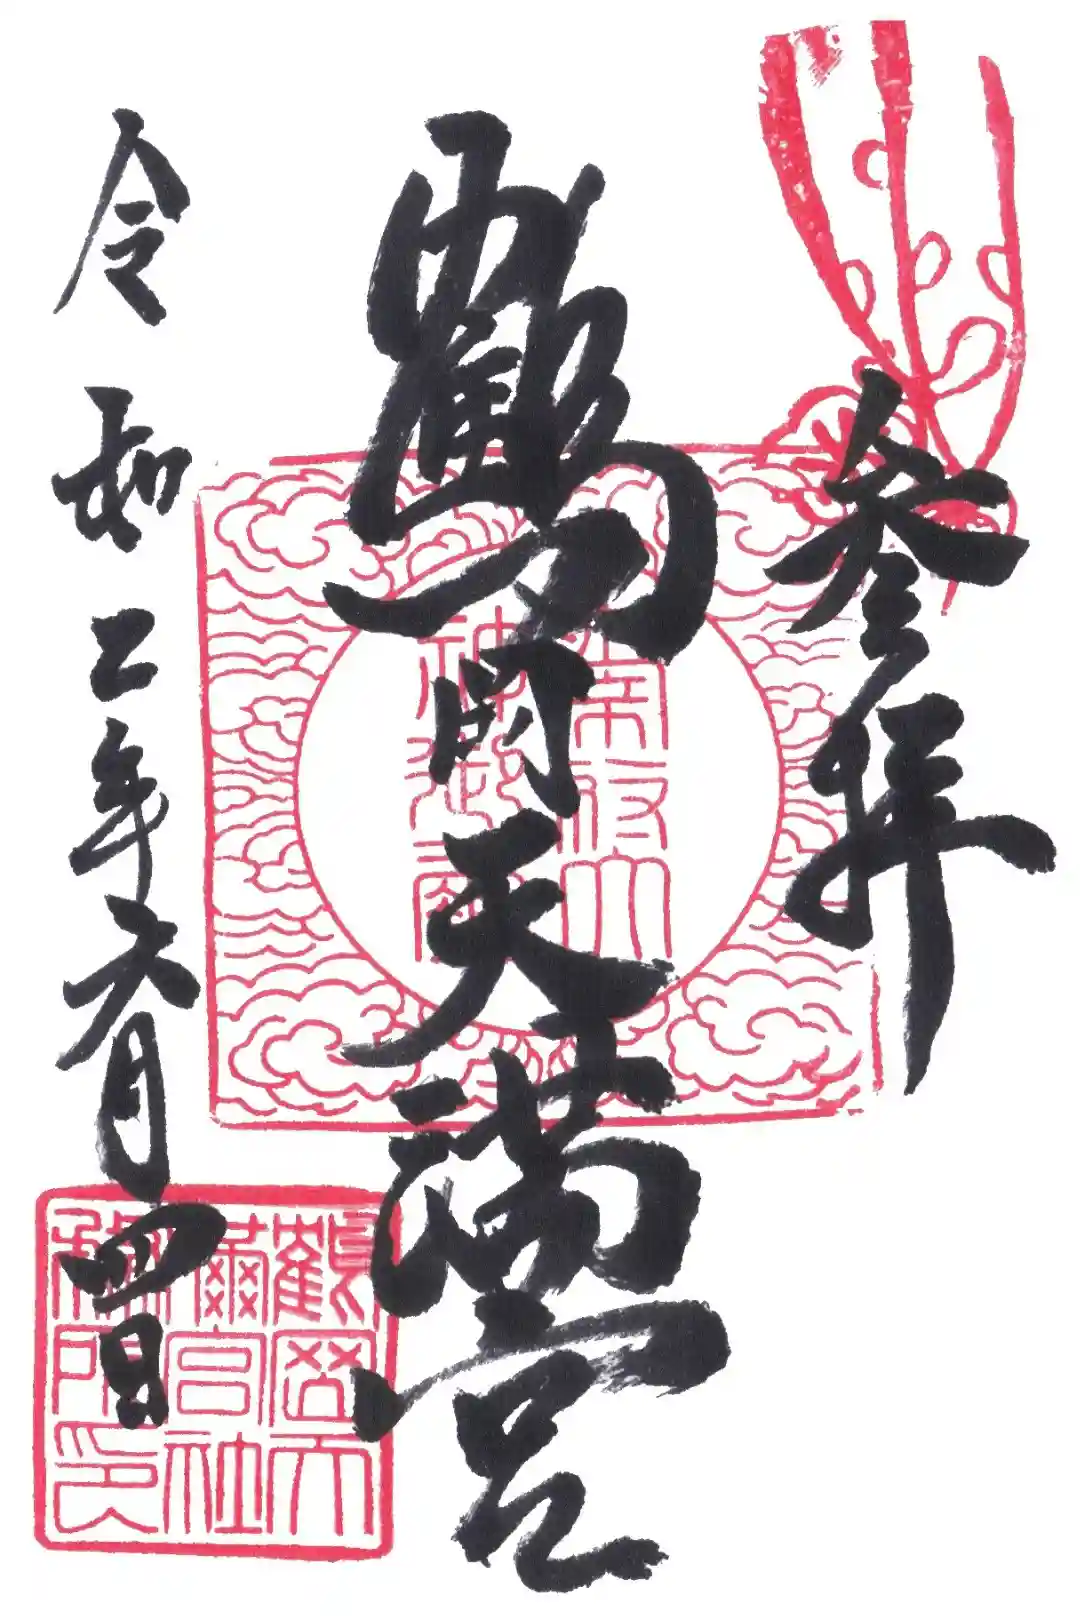 参拝
靏岡天満宮
令和二年六月四日
鶴岡天
満宮社
務所印